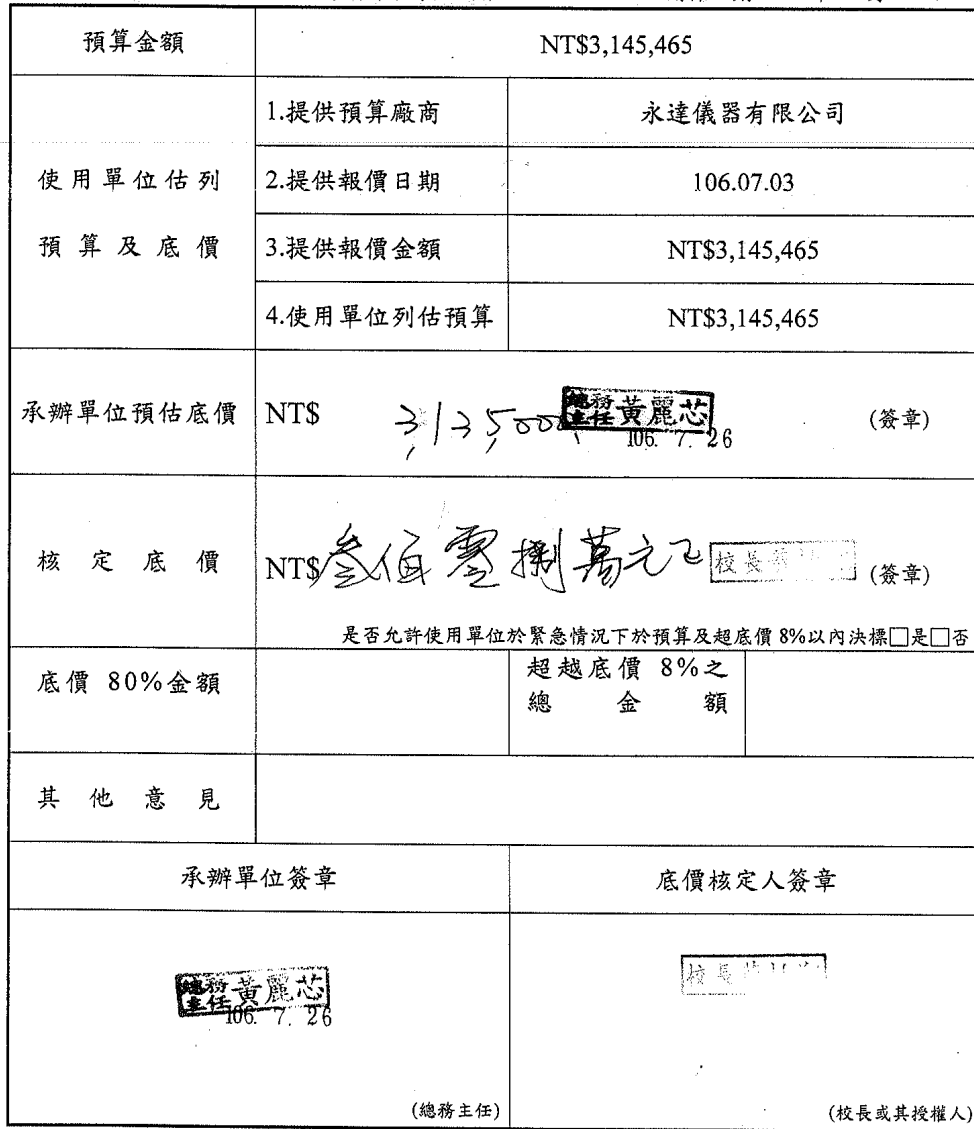 預算金額 NT$3,145,465
使用單位估列
預算及底價
1.提供預算廠商 永達儀器有限公司
2.提供報價日期 106.07.03
3.提供報價金額 NT$3,145,465
4.使用單位列估預算 NT$3,145,465
承辦單位預估底價 NT$ 3,135,000 總務主任 黃麗芯 (簽章)
106. 7. 26
核定底價 NT$叁佰零捌萬元 校長 (簽章)
是否允許使用單位於緊急情況下於預算及超底價 8%以內決標□是□否
底價 80%金額
超越底價 8%之
總金額
其他意見
承辦單位簽章 底價核定人簽章
總務主任 黃麗芯 校長
106. 7. 26
(總務主任) (校長或其授權人)